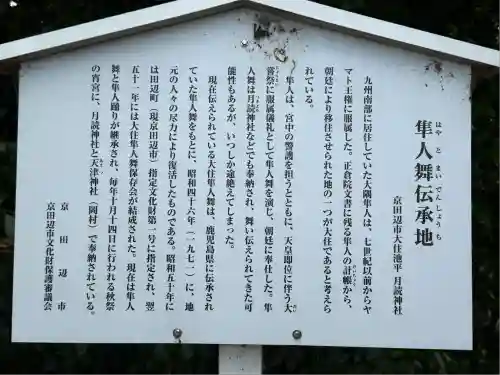 隼人舞伝承地
はやとまいでんしょうち
京田辺市大住池平 月読神社
九州南部に居住していた大隅隼人は、七世紀以前からヤ
マト王権に服属した。正倉院文書に残る隼人の計帳から、
朝廷により移住させられた地の一つが大住であると考えら
れている。
隼人は、宮中の警護を担うとともに、天皇即位に伴う大
嘗祭に服属儀礼として隼人舞を演じ、朝廷に奉仕した。隼
人舞は月読神社などでも奉納され、舞い伝えられてきた可
能性もあるが、いつしか途絶えてしまった。
現在伝えられている大住隼人舞は、鹿児島県に伝承され
ていた隼人舞をもとに、昭和四十六年(一九七一)に、地
元の人々の尽力により復活したものである。昭和五十年に
は田辺町(現京田辺市)指定文化財第一号に指定され、翌
五十一年には大住隼人舞保存会が結成された。現在は隼人
舞と隼人踊りが継承され、毎年十月十四日に行われる秋祭
の宵宮に、月読神社と天津神社(岡村)で奉納されている。
京田辺市
京田辺市文化財保護審議会